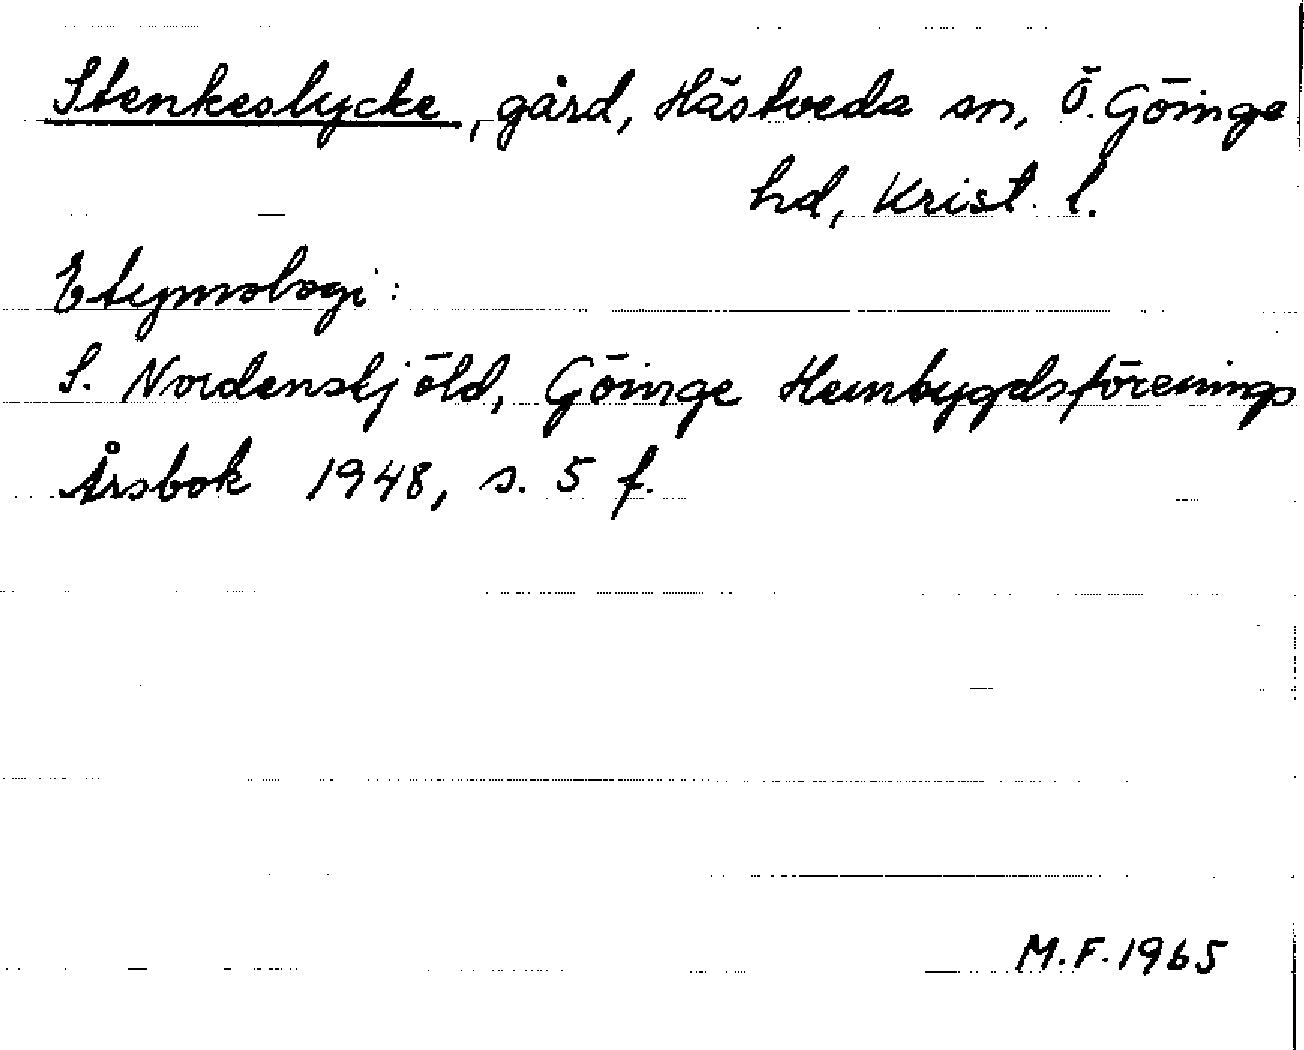 Stenkeslycke, gård, Hästveda sn, Ö. Göinge
hd, Krist. l.
Etymologi:
S. Nordenskjöld, Göinge Hembygdsförenings
Årsbok 1948, s. 5 f.
M.F. 1965